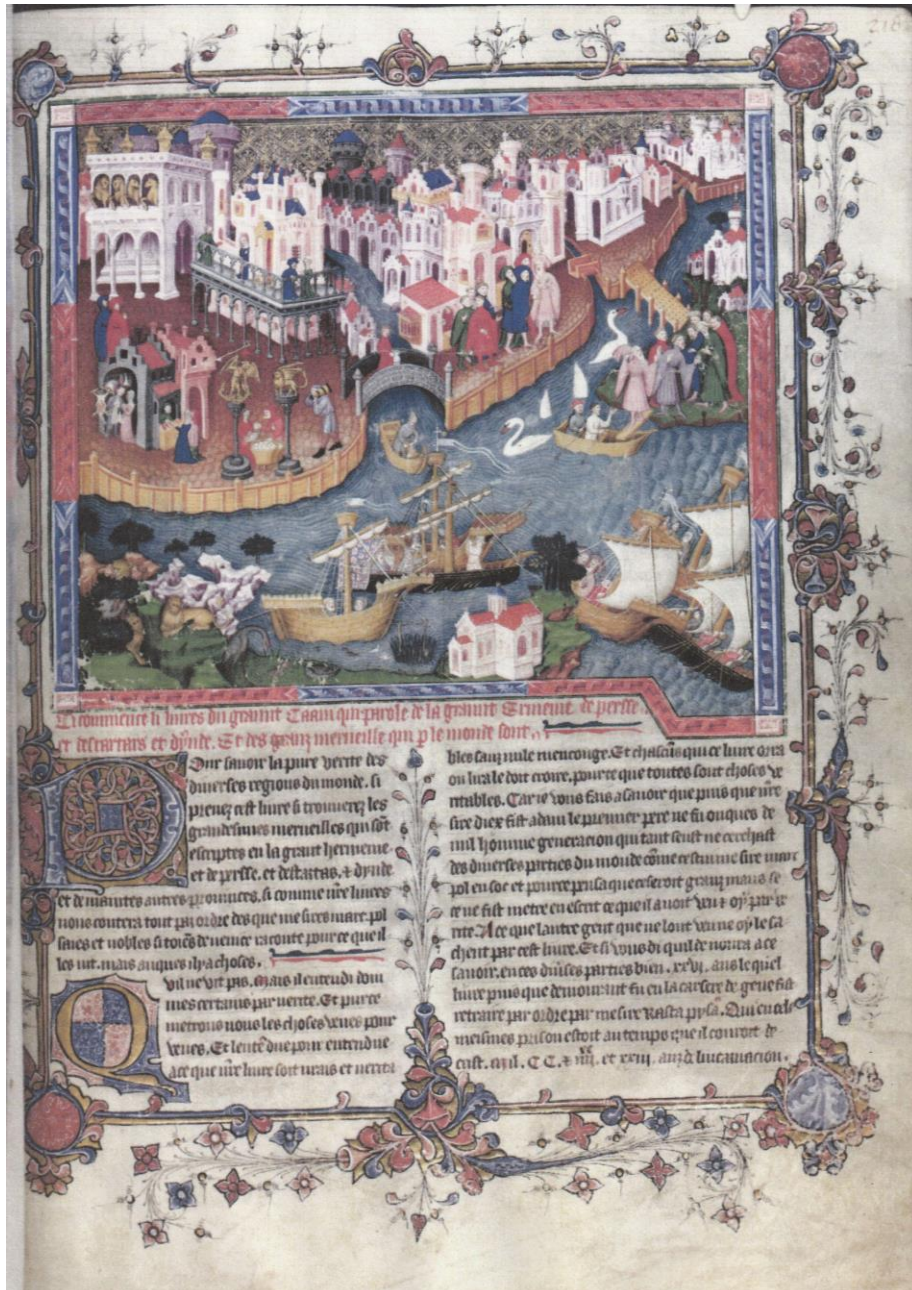 218
Ci commence li livres du graunt Caam qui parole de la graunt Ermenie de persse
et des tartars et dynde. Et des granz merveille qui p le monde sont.
Pour savoir la pure verite des
diverses regions du monde. si
prenez cest livre si trouverez les
grandesimes merveilles qui sont
escriptes en la grant hermenie
et de persse. et des tartas. & dynde
et de maintes autres provinces. si comme nre livres
nous contera tout par ordre des que me sires marc pol
saies et nobles citoiés de venice raconte pour ce que il
les vit. mais auques il y a choses.
Quil ne vit pas. Mais il entendi dom
mes certains par verite. Et pur ce
metrons nous les choses veues pour
veues. Et lentédue pour entendue
a ce que nre livre soit vrais et verita
bles sanz nule mencouge. Et chascuns qui ce livre orra
ou lira le doit croire. pour ce que toutes sont choses ve
ritables. Car ie vous fais a savoir que puis que nre
sire diex fist adam le premier pere ne fu onques de
nul homme generacion qui tant seust ne cerchast
des diverses parties du monde côme cestui me sire marc
pol en soc et pour ce pensa que ce seroit granz maus se
ce ne fist metre en escrit ce quil avoit veu & oy par ve
rite A ce que lautre gent que ne lont veu ne oy le sa
chent par cest livre. Et si vous di quil demoura a ce
savoir. en ces divses parties bien .xxvi. ans le quel
livre puis que demourant fu en la carsere de geve fist
retraire par ordre par me sire Rasta pysa. Qui en cele
meismes prison estoit au temps que il couroit de
crist. mil. CC. & iiii. xx et xviii. anz de lincarnacion.